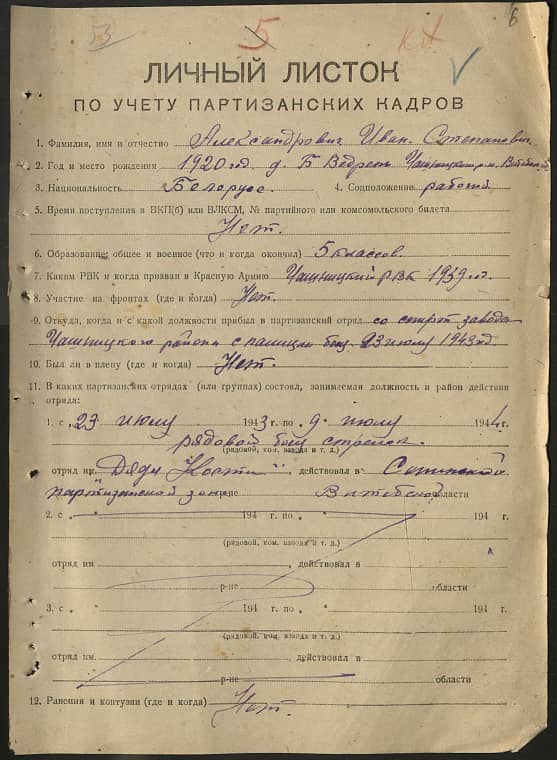 53 5 6
ЛИЧНЫЙ ЛИСТОК
ПО УЧЕТУ ПАРТИЗАНСКИХ КАДРОВ
1. Фамилия, имя и отчество Александрович Иван Степанович
2. Год и место рождения 1920 год д. Б Ведрень Чашницкого р-на Витебской
3. Национальность Белорус. 4. Соцположение рабочий
5. Время поступления в ВКП(б) или ВЛКСМ, № партийного или комсомольского билета
Нет.
6. Образование: общее и военное (что и когда окончил) 5 классов.
7. Каким РВК и когда призван в Красную Армию Чашницкий РВК 1939 год.
8. Участие на фронтах (где и когда) Нет.
9. Откуда, когда и с какой должности прибыл в партизанский отряд со спирт завода
Чашницкого района 23 июлу 1943 год
10. Был ли в плену (где и когда) Нет.
11. В каких партизанских отрядах (или группах) состоял, занимаемая должность и район действия
отряда:
1. с „23 июлу 1943 г. по „9 июлу 1944 г.
рядовой боец стрелок.
(рядовой, ком. взвода и т. д.)
отряд им. Дяди Кости", действовал в Сенненской
партизанской зоне Витебской области
2. с „ 194 г. по „ 194 г.
(рядовой, ком. взвода и т. д.)
отряд им , действовал в
р-не области
3. с „ 194 г. по „ 194 г.
(рядовой, ком. взвода и т. д.)
отряд им. , действовал в
р-не области
12. Ранения и контузии (где и когда) Нет.